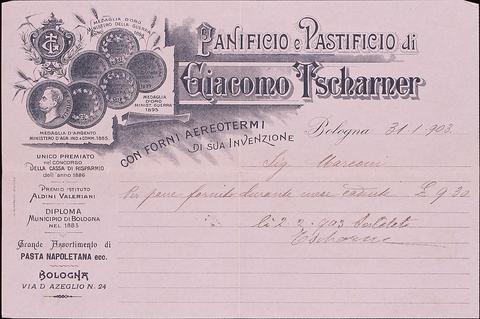 PANIFICIO e PASTIFICIO di
Giacomo Tscharner
CON FORNI AEREOTERMI
DI SUA INVENZIONE
MEDAGLIA D'ORO
MINISTRO DELLA GUERRA
MEDAGLIA
D'ORO
MINIST. GUERRA
1895
MEDAGLIA D'ARGENTO
MINISTERO D'AGR. IND. e COMM. 1885.
UNICO PREMIATO
nel CONCORSO
DELLA CASSA DI RISPARMIO
dell'anno 1886
PREMIO ISTITUTO
ALDINI VALERIANI
DIPLOMA
MUNICIPIO DI BOLOGNA
NEL 1883
Grande Assortimento di
PASTA NAPOLETANA ecc.
BOLOGNA
VIA D'AZEGLIO N. 24
Bologna 31.1.903.
Sig Marconi
Per pane fornito durante mese cadente £ 9.30
li 2 2 - 903 Saldato